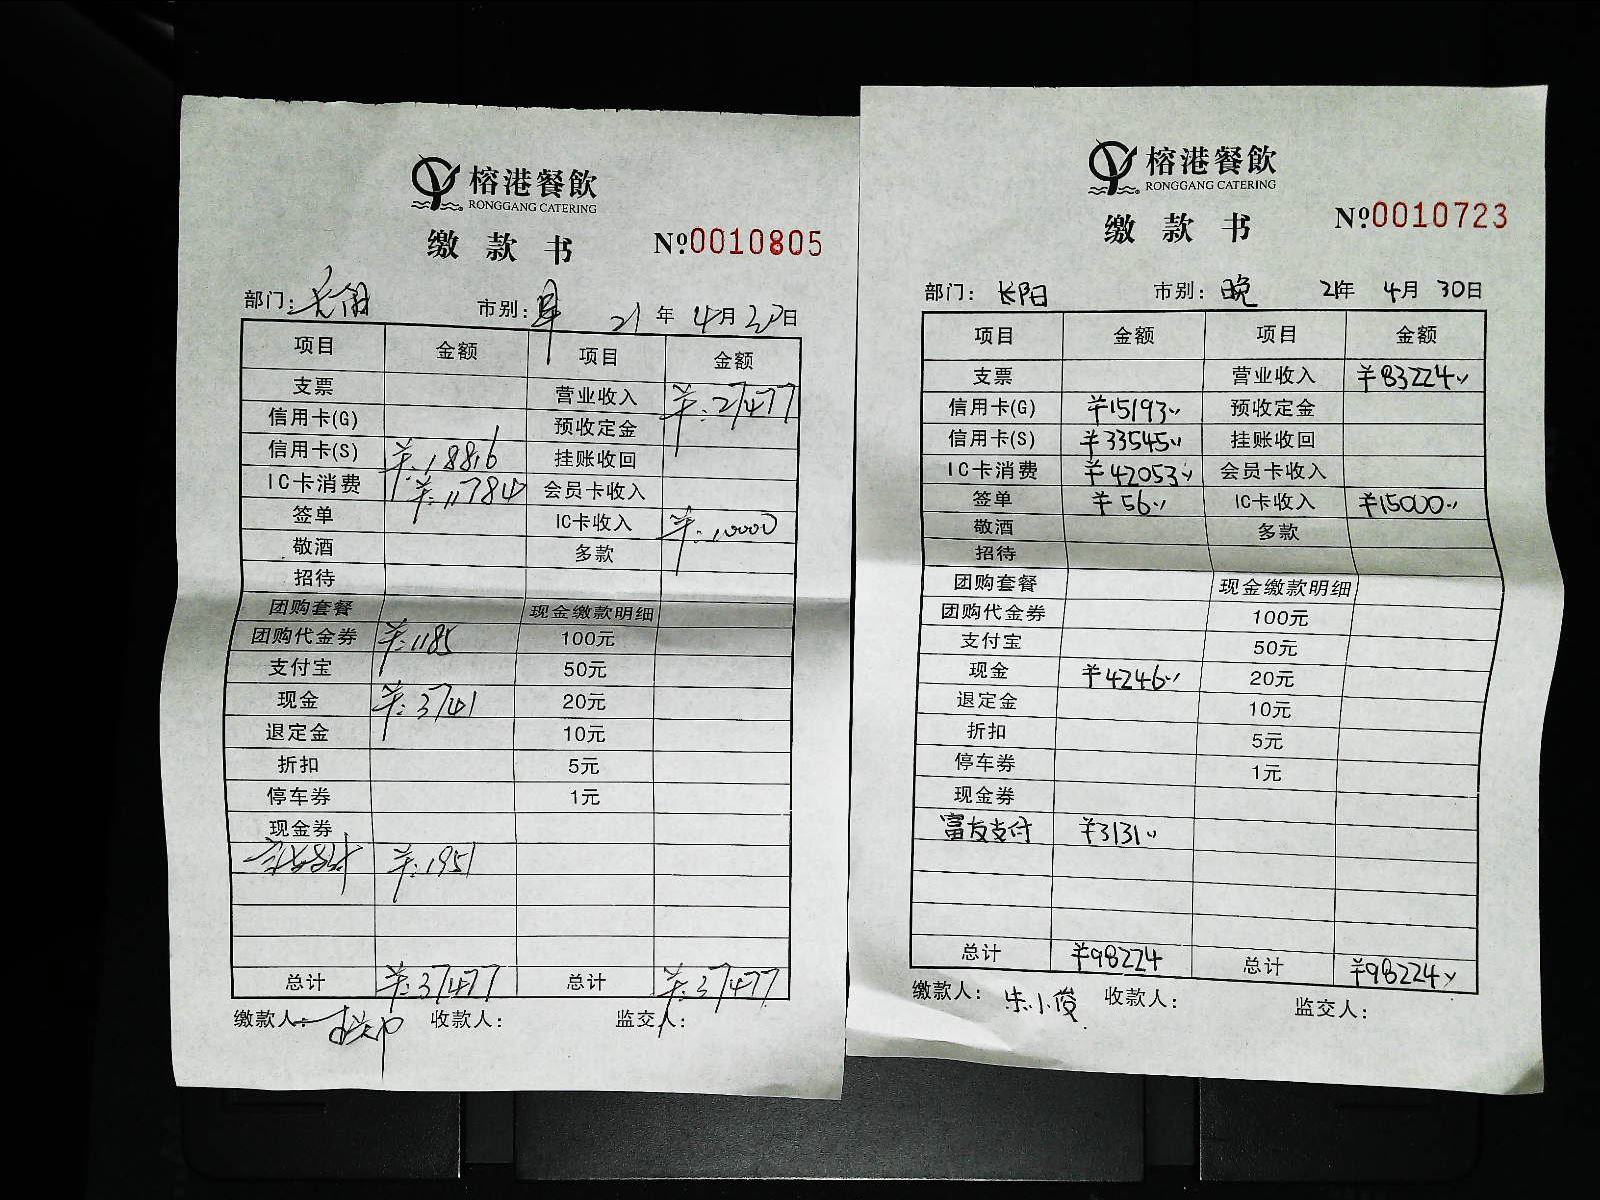 榕港餐飲
RONGGANG CATERING
缴款书 №0010805
部门: 长阳 市别: 21年 4月 30日
项目 金额 项目 金额
支票 营业收入 ¥:27477
信用卡(G) 预收定金
信用卡(S) ¥:18816 挂账收回
IC卡消费 ¥:11784 会员卡收入
签单 IC卡收入 ¥:10000
敬酒 多款
招待
团购套餐 现金缴款明细
团购代金券 ¥:1185 100元
支付宝 50元
现金 ¥:3741 20元
退定金 10元
折扣 5元
停车券 1元
现金券
¥:1951
总计 ¥:37477 总计 ¥:37477
缴款人: 收款人: 监交人:
榕港餐飲
RONGGANG CATERING
缴款书 №0010723
部门: 长阳 市别: 晚 21年 4月 30日
项目 金额 项目 金额
支票 营业收入 ¥83224
信用卡(G) ¥15193 预收定金
信用卡(S) ¥33545 挂账收回
IC卡消费 ¥42053 会员卡收入
签单 ¥56 IC卡收入 ¥15000
敬酒 多款
招待
团购套餐 现金缴款明细
团购代金券 100元
支付宝 50元
现金 ¥4246 20元
退定金 10元
折扣 5元
停车券 1元
现金券
富友支付 ¥3131
总计 ¥98224 总计 ¥98224
缴款人: 朱小俊 收款人: 监交人: